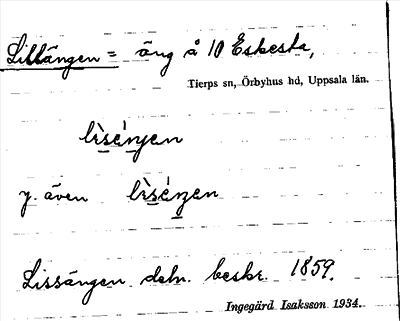 Lillängen = äng å 10 Eskesta,
Tierps sn, Örbyhus hd, Uppsala län.
y. även
Lissängen deln. beskr. 1859.
Ingegärd Isaksson 1934.